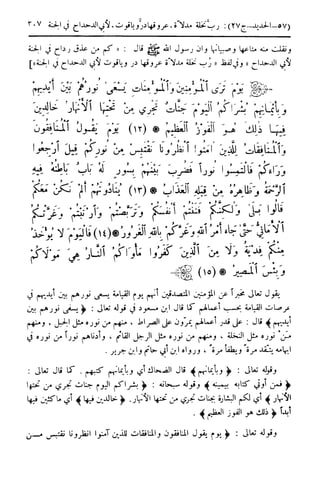 (٥٧-الحديد-ج٢٧): رب نخلة مدلاة، عروقها در وياقوت، لأبي الدحداح في الجنة ٣٠٧
ونقلت منه متاعها وصبيانها وان رسول الله ﷺ قال : « كم من عذق رداح في الجنة
لأبي الدحداح » وفي لفظ « رب نخلة مدلاة عروقها در وياقوت لأبي الدحداح في الجنة»
يَوْمَ تَرَى الْمُؤْمِنِينَ وَالْمُؤْمِنَاتِ يَسْعَى نُورُهُمْ بَيْنَ أَيْدِيهِمْ
وَبِأَيْمَانِهِمْ بُشْرَاكُمُ الْيَوْمَ جَنَّاتٌ تَجْرِي مِنْ تَحْتِهَا الْأَنْهَارُ خَالِدِينَ
فِيهَا ذَلِكَ هُوَ الْفَوْزُ الْعَظِيمُ (١٢) يَوْمَ يَقُولُ الْمُنَافِقُونَ
وَالْمُنَافِقَاتُ لِلَّذِينَ آمَنُوا انْظُرُونَا نَقْتَبِسْ مِنْ نُورِكُمْ قِيلَ ارْجِعُوا
وَرَاءَكُمْ فَالْتَمِسُوا نُوراً فَضُرِبَ بَيْنَهُمْ بِسُورٍ لَهُ بَابٌ بَاطِنُهُ فِيهِ
الرَّحْمَةُ وَظَاهِرُهُ مِنْ قِبَلِهِ الْعَذَابُ (١٣) يُنَادُونَهُمْ أَلَمْ نَكُنْ مَعَكُمْ
قَالُوا بَلَى وَلَكِنَّكُمْ فَتَنْتُمْ أَنْفُسَكُمْ وَتَرَبَّصْتُمْ وَارْتَبْتُمْ وَغَرَّتْكُمُ
الْأَمَانِيُّ حَتَّى جَاءَ أَمْرُ اللَّهِ وَغَرَّكُمْ بِاللَّهِ الْغَرُورُ (١٤) فَالْيَوْمَ لَا يُؤْخَذُ
مِنْكُمْ فِدْيَةٌ وَلَا مِنَ الَّذِينَ كَفَرُوا مَأْوَاكُمُ النَّارُ هِيَ مَوْلَاكُمْ
وَبِئْسَ الْمَصِيرُ (١٥)
يقول تعالى مخبراً عن المؤمنين المتصدقين أنهم يوم القيامة يسعى نورهم بين أيديهم في
عرصات القيامة بحسب أعمالهم كما قال ابن مسعود في قوله تعالى : ﴿ يسعى نورهم بين
أيديهم ﴾ قال : على قدر أعمالهم يمرّون على الصراط ، منهم من نوره مثل الجبل ، ومنهم
مَن نوره مثل النخلة ، ومنهم من نوره مثل الرجل القائم ، وأدناهم نوراً من نوره في
إبهامه يتّقد مرة ويطفأ مرة ، ورواه ابن أبي حاتم وابن جرير .
وقوله تعالى : ﴿ وبأيمانهم ﴾ قال الضحاك أي وبأيمانهم كتبهم . كما قال تعالى :
﴿ فمن أوتي كتابه بيمينه ﴾ وقوله سبحانه : ﴿ بشراكم اليوم جنات تجري من تحتها
الأنهار ﴾ أي لكم البشارة بجنات تجري من تحتها الأنهار. ﴿ خالدين فيها ﴾ أي ماكثين فيها
أبداً ﴿ ذلك هو الفوز العظيم ﴾ .
وقوله تعالى : ﴿ يوم يقول المنافقون والمنافقات للذين آمنوا انظرونا نقتبس مـن